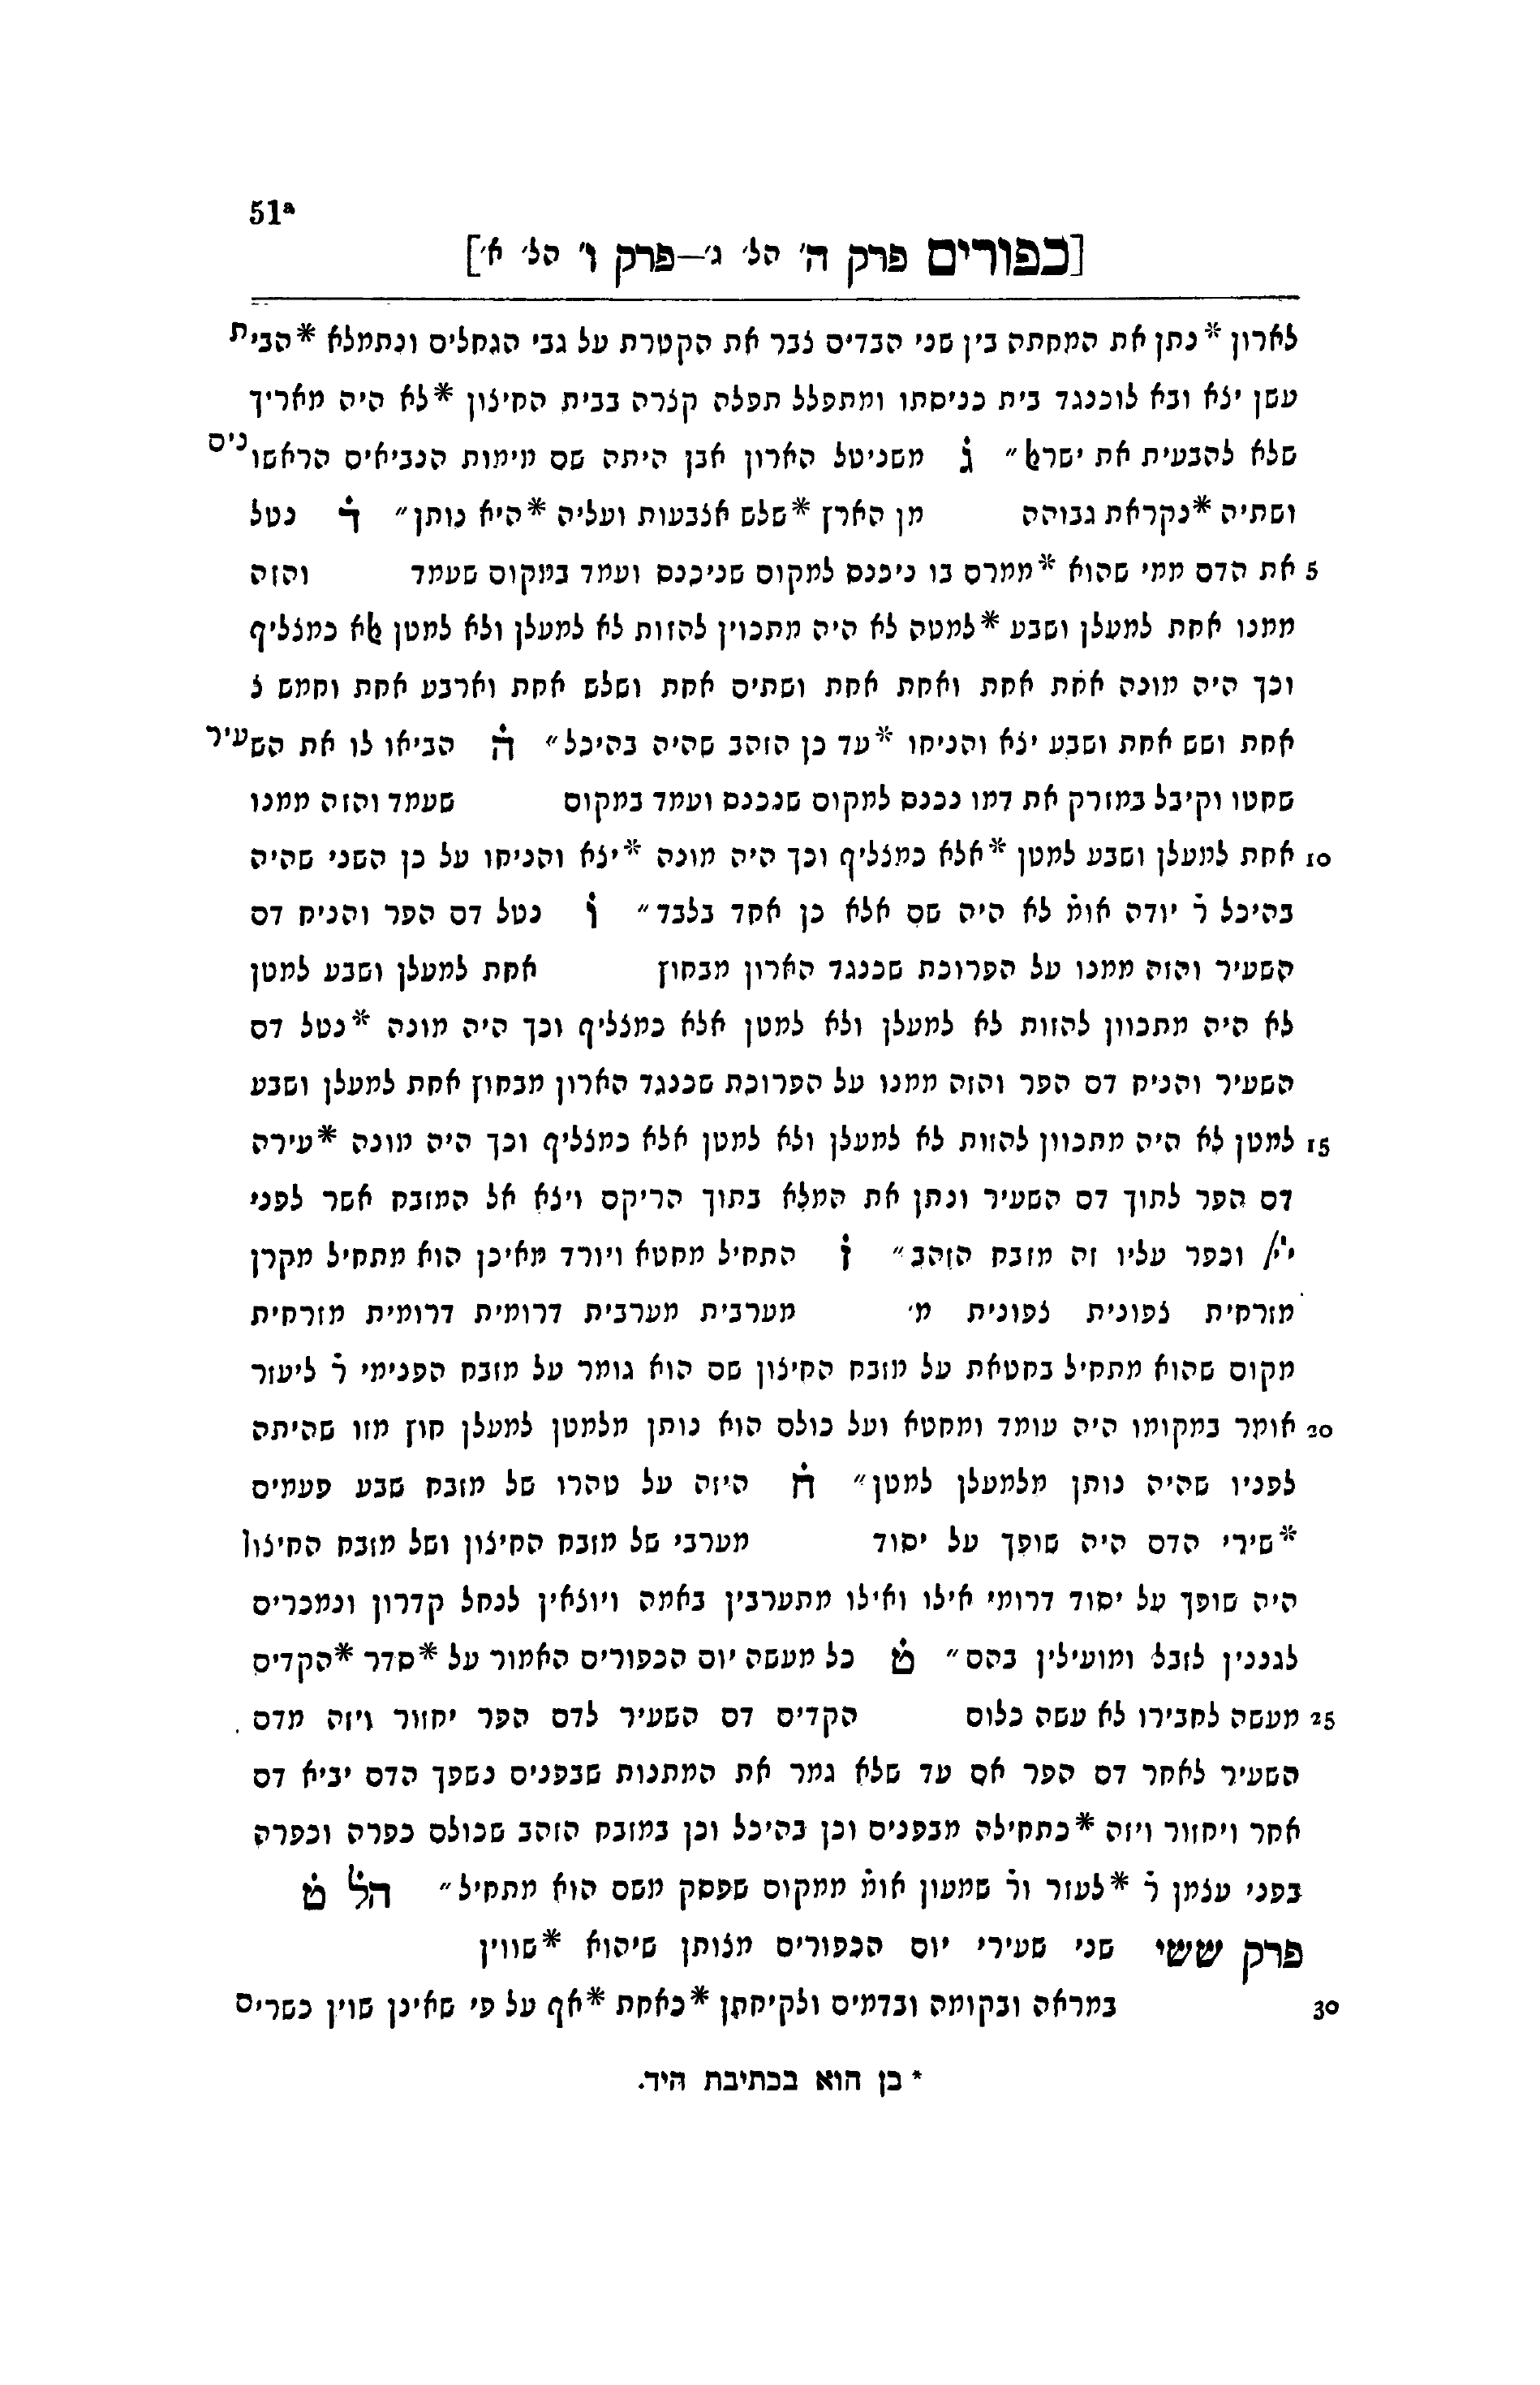 51ª
[כפורים פרק ה' הל' ג'–פרק ו' הל' א']
לארון *נתן את המחתה בין שני הבדים צבר את הקטרת על גבי הגחלים ונתמלא *הבית
עשן יצא ובא לוכנגד בית כניסתו ומתפלל תפלה קצרה בבית החיצון *לא היה מאריך
שלא להבעית את ישרﭏ״ ג משניטל הארון אבן היתה שם מימות הנביאים הראשונים
ושתיה *נקראת גבוהה מן הארץ *שלש אצבעות ועליה *היא נותן״ ד נטל
5 את הדם ממי שהוא *ממרס בו ניכנס למקום שניכנס ועמד במקום שעמד והזה
ממנו אחת למעלן ושבע *למטה לא היה מתכוין להזות לא למעלן ולא למטן ﭏא כמצליף
וכך היה מונה אחת אחת ואחת אחת ושתים אחת ושלש אחת וארבע אחת וחמש צ
אחת ושש אחת ושבע יצא והניחו *עד כן הזהב שהיה בהיכל״ ה הביאו לו את השעיר
שחטו וקיבל במזרק את דמו נכנס למקום שנכנס ועמד במקום שעמד והזה ממנו
10 אחת למעלן ושבע למטן *אלא כמצליף וכך היה מונה *יצא והניחו על כן השני שהיה
בהיכל ר̇ יודה אומ̇ לא היה שם אלא כן אחד בלבד״ ו נטל דם הפר והניח דם
השעיר והזה ממנו על הפרוכת שכנגד הארון מבחוץ אחת למעלן ושבע למטן
לא היה מתכוון להזות לא למעלן ולא למטן אלא כמצליף וכך היה מונה *נטל דם
השעיר והניח דם הפר והזה ממנו על הפרוכת שכנגד הארון מבחוץ אחת למעלן ושבע
15 למטן לא היה מתכוון להזות לא למעלן ולא למטן אלא כמצליף וכך היה מונה *עירה
דם הפר לתוך דם השעיר ונתן את המלא בתוך הריקם ויצא אל המזבח אשר לפני
י'י/ וכפר עליו זה מזבח הזהב״ ז התחיל מחטא ויורד מאיכן הוא מתחיל מקרן
מזרחית צפונית צפונית מ' מערבית מערבית דרומית דרומית מזרחית
מקום שהוא מתחיל בחטאת על מזבח החיצון שם הוא גומר על מזבח הפנימי ר̇ ליעזר
20 אומר במקומו היה עומד ומחטא ועל כולם הוא נותן מלמטן למעלן חוץ מזו שהיתה
לפניו שהיה נותן מלמעלן למטן״ ח היזה על טהרו של מזבח שבע פעמים
*שירי הדם היה שופך על יסוד מערבי של מזבח החיצון ושל מזבח החיצון
היה שופך על יסוד דרומי אילו ואילו מתערבין באמה ויוצאין לנחל קדרון ונמכרים
לגננין לזבל ומועילין בהם״ ט כל מעשה יום הכפורים האמור על *סדר *הקדים
25 מעשה לחבירו לא עשה כלום הקדים דם השעיר לדם הפר יחזור ויזה מדם
השעיר לאחר דם הפר אם עד שלא גמר את המתנות שבפנים נשפך הדם יביא דם
אחר ויחזור ויזה *כתחילה מבפנים וכן בהיכל וכן במזבח הזהב שכולם כפרה וכפרה
בפני עצמן ר̇ *לעזר ור̇ שמעון אומ̇ ממקום שפסק משם הוא מתחיל״ הל ט
פרק ששי שני שעירי יום הכפורים מצותן שיהוא *שווין
30 במראה ובקומה ובדמים ולקיחתן *כאחת *אף על פי שאינן שוין כשרים
* כן הוא בכתיבת היד.